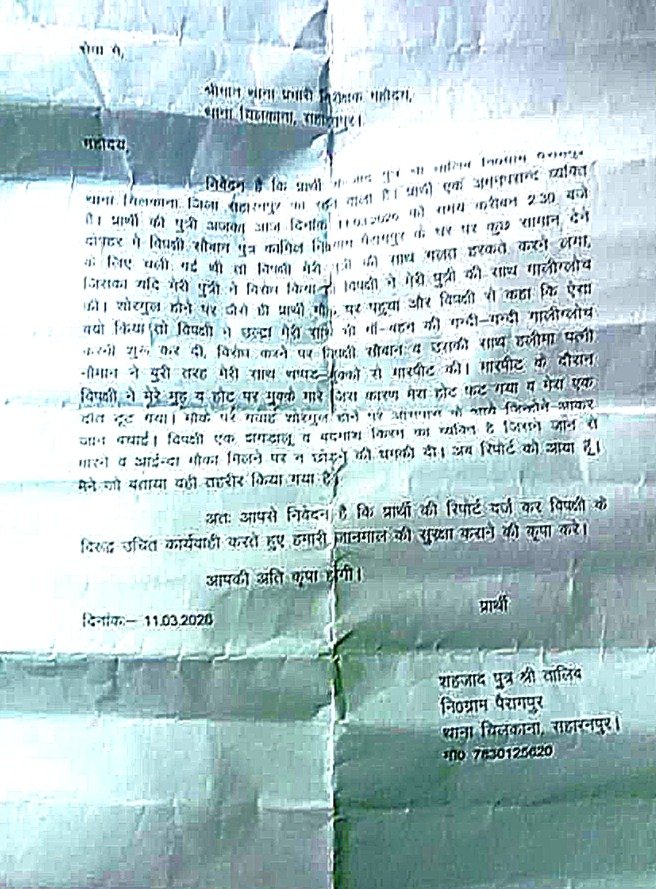 सेवा में,
श्रीमान थाना प्रभारी निरीक्षक महोदय,
थाना चिलकाना, सहारनपुर।
महोदय,
निवेदन है कि प्रार्थी शहजाद पुत्र श्री तालिब नि0ग्राम पैरागपुर
थाना चिलकाना जिला सहारनपुर का रहने वाला है। प्रार्थी एक अमनपसन्द व्यक्ति
है। प्रार्थी की पुत्री आज दिनांक 11.03.2020 को समय करीबन 2:30 बजे
दोपहर में विपक्षी सौबान पुत्र कामिल नि0ग्राम पैरागपुर के घर पर कुछ सामान देने
के लिए चली गई थी तो विपक्षी मेरी पुत्री की साथ गलत हरकते करने लगा,
जिसका यदि मेरी पुत्री ने विरोध किया तो विपक्षी ने मेरी पुत्री की साथ गालीगलोच
की। शोरगुल होने पर जैसे ही प्रार्थी मौके पर पहुचा और विपक्षी से कहा कि ऐसा
क्यो किया तो विपक्षी ने उल्टा मेरी साथ भी माँ-बहन की गन्दी-गन्दी गालीगलोच
करनी शुरू कर दी, विरोध करने पर विपक्षी सौबान व उसकी साथ हलीमा पत्नी
नौमान ने बुरी तरह मेरी साथ थप्पड-मुक्को से मारपीट की। मारपीट के दौरान
विपक्षी ने मेरे मुह व होट पर मुक्के मारे जिस कारण मेरा होट फट गया व मेरा एक
दांत टूट गया। मौके पर शोरगुल होने पर आसपास के आये जिन्होने आकर
जान बचाई। विपक्षी एक झगडालू व बदमाश किस्म का व्यक्ति है जिसने जॉन से
मारने व आईन्दा मौका मिलने पर न छोडने की धमकी दी। अब रिपोर्ट को आया हूँ।
मेने जो बताया वही तहरीर किया गया है।
अतः आपसे निवेदन है कि प्रार्थी की रिपोर्ट दर्ज कर विपक्षी के
विरूद्ध उचित कार्यवाही करते हुए हमारी जानमाल की सुरक्षा कराने की कृपा करे।
आपकी अति कृपा होगी।
प्रार्थी
दिनांक:- 11.03.2020
शहजाद पुत्र श्री तालिब
नि0ग्राम पैरागपुर
थाना चिलकाना, सहारनपुर।
मो0 7830125620